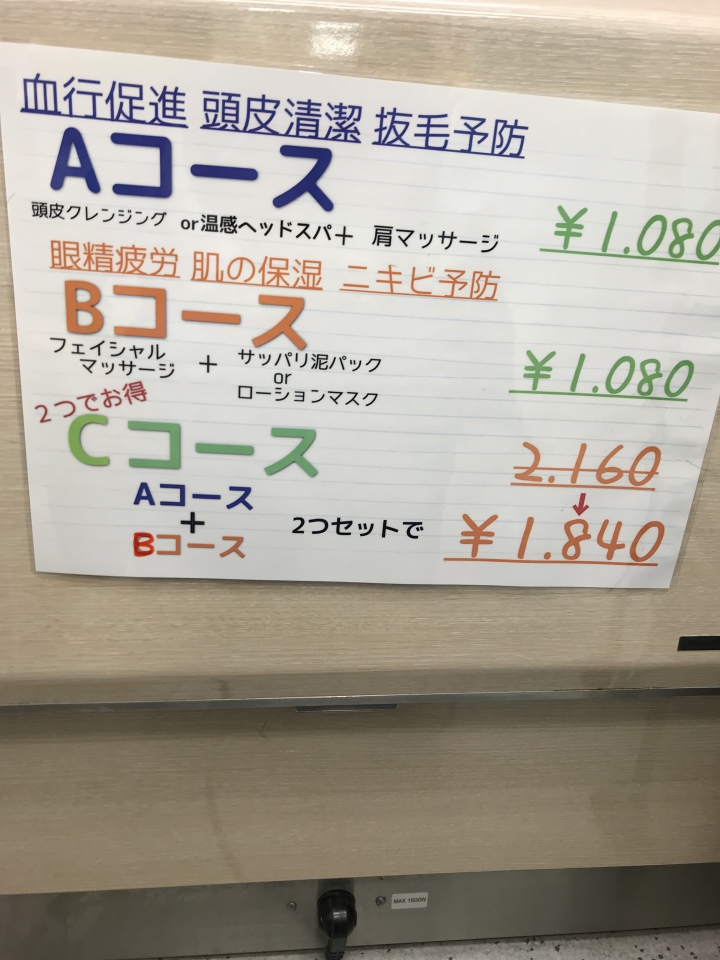 血行促進 頭皮清潔 抜毛予防
Aコース
頭皮クレンジング or温感ヘッドスパ+ 肩マッサージ ¥1.080
眼精疲労 肌の保湿 ニキビ予防
Bコース
フェイシャル
マッサージ
+
サッパリ泥パック
or
ローションマスク
¥1.080
2つでお得
Cコース
2.160
↓
Aコース
+
Bコース
2つセットで ¥1.840
MAX 1500W